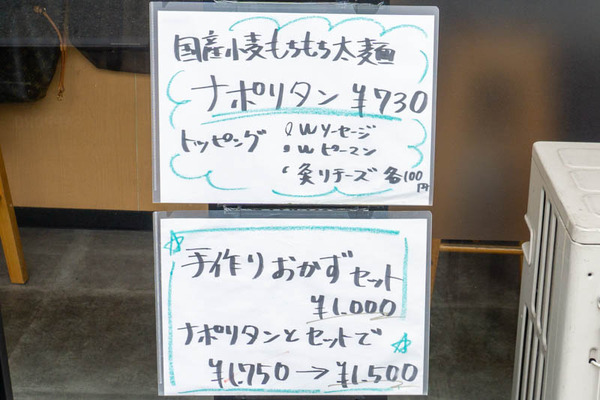 国産小麦もちもち太麺
ナポリタン ¥730
トッピング
Wソーセージ
Wピーマン
炙りチーズ 各100円
手作りおかずセット
¥1,000
ナポリタンとセットで
¥1,750→¥1,500